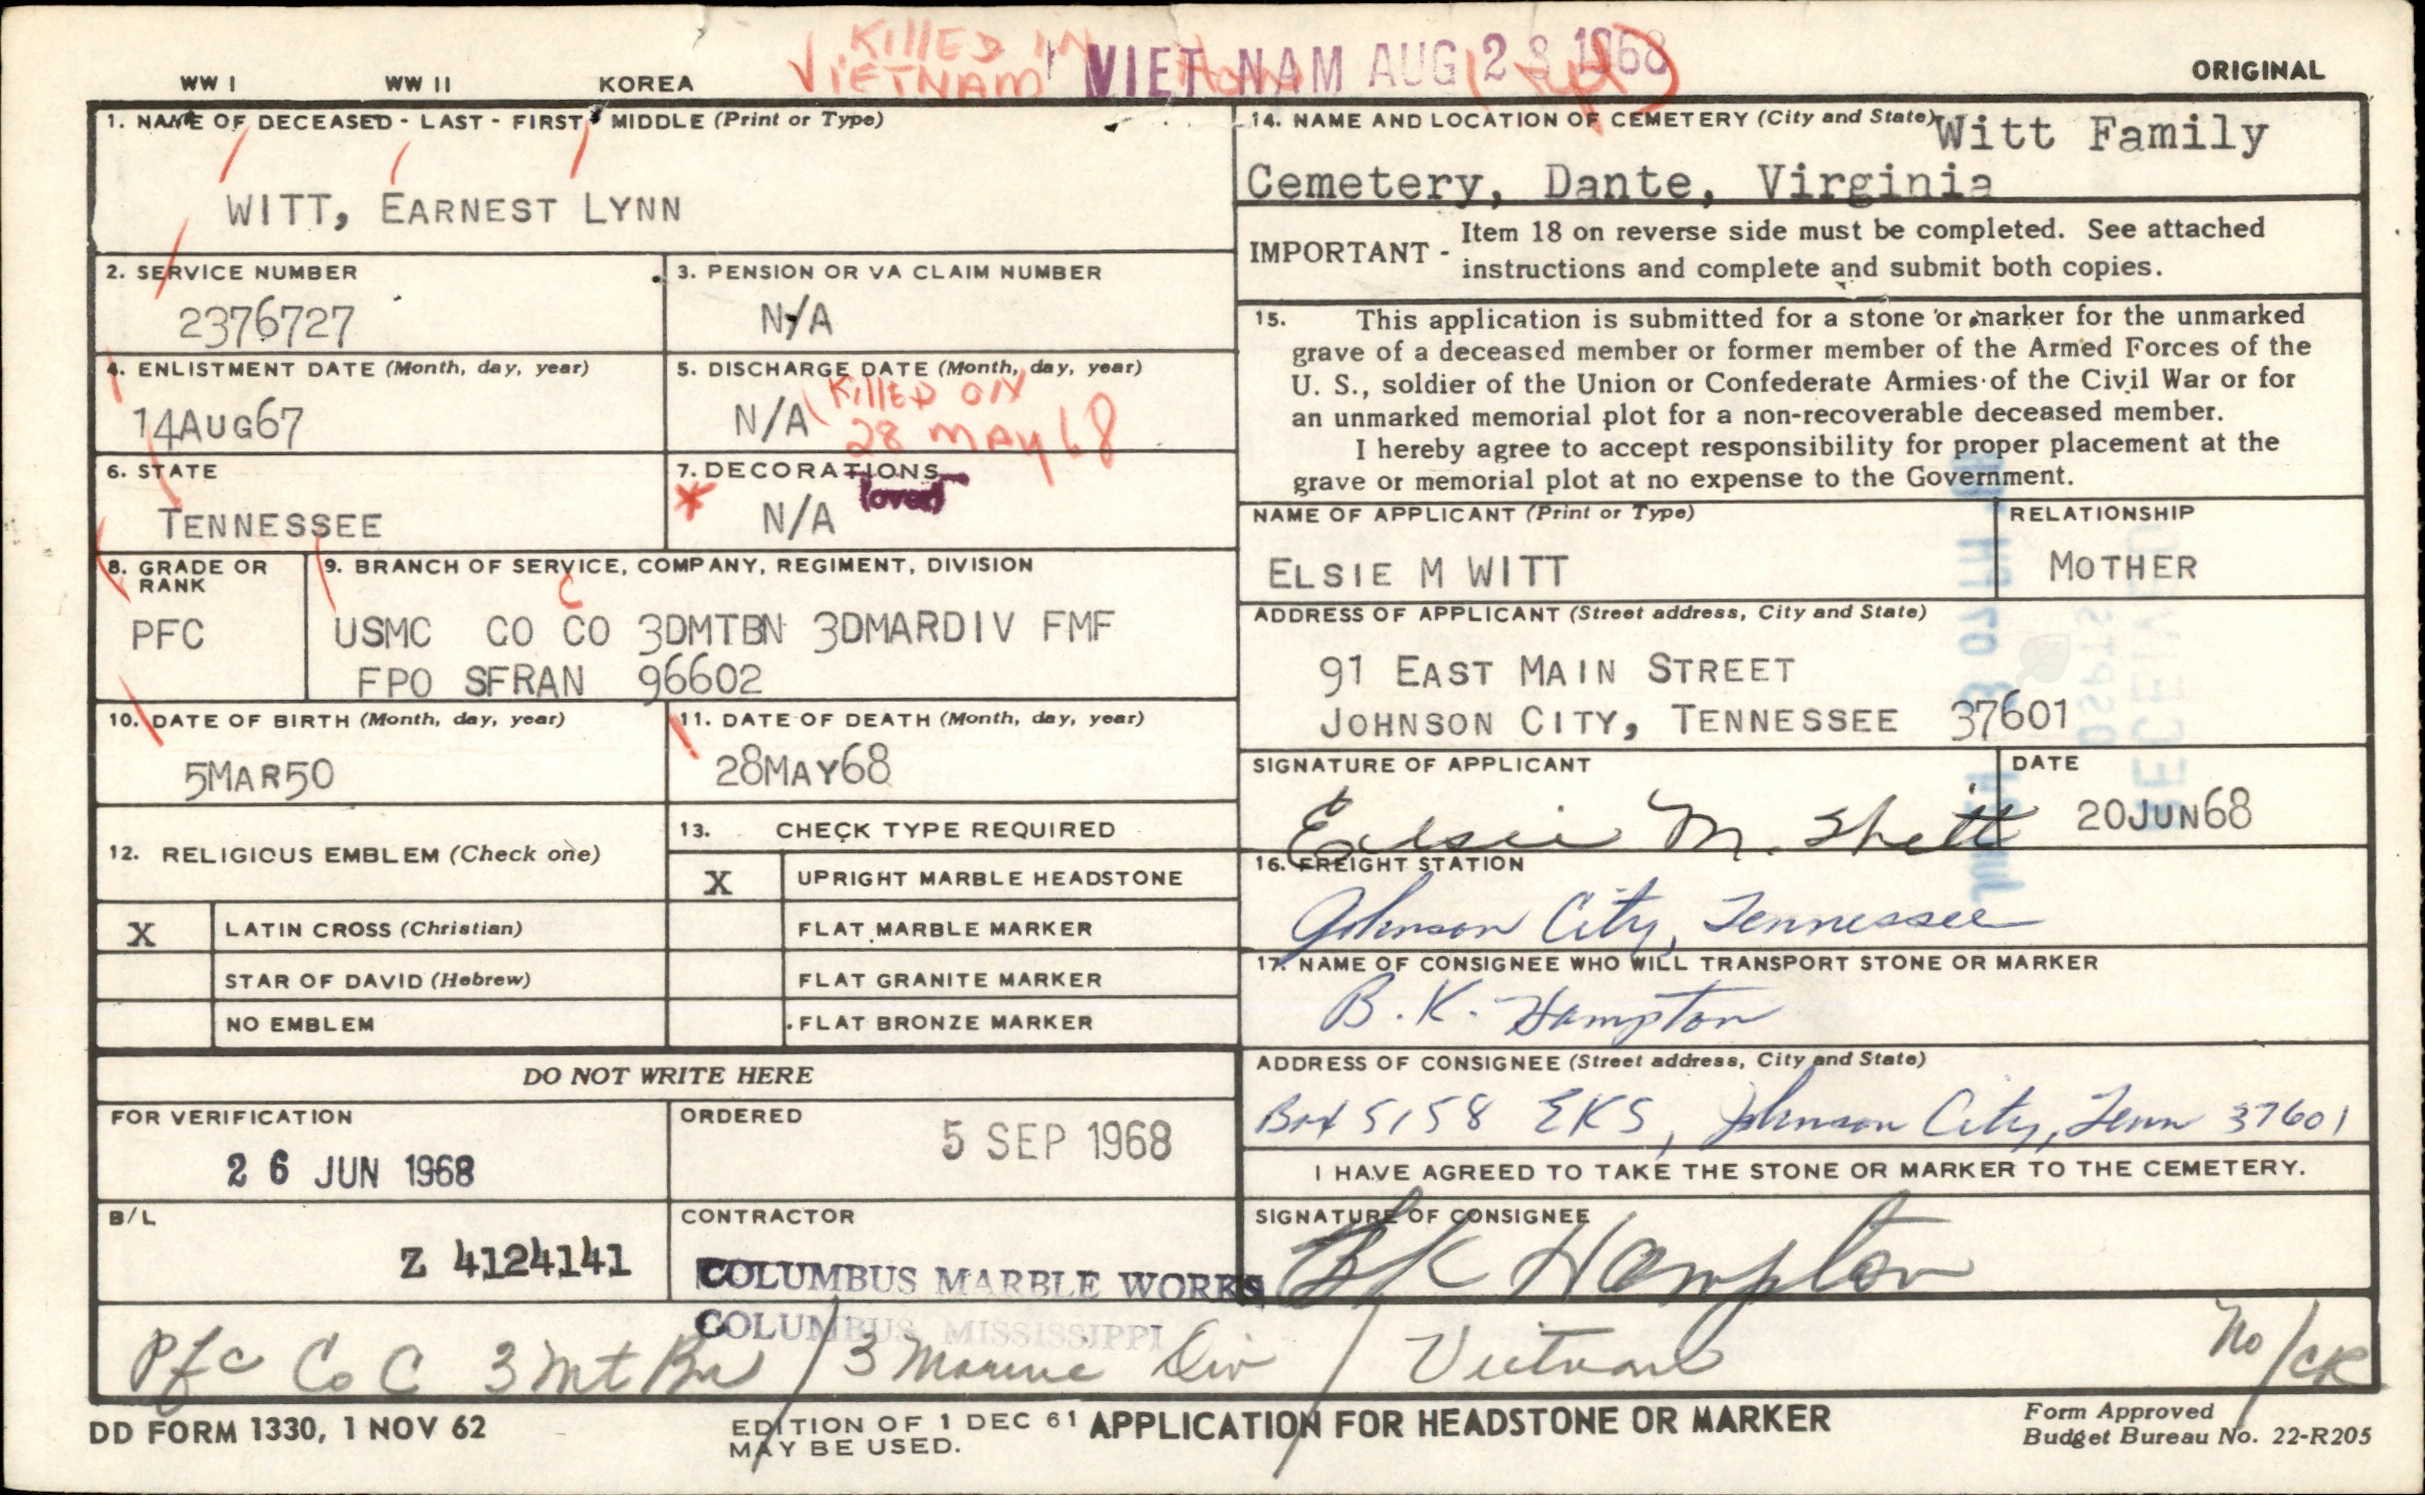 KILLED IN
VIETNAM
VIET NAM AUG 28 1968
WW I WW II KOREA
ORIGINAL
1. NAME OF DECEASED - LAST - FIRST - MIDDLE (Print or Type)
WITT, EARNEST LYNN
2. SERVICE NUMBER
2376727
3. PENSION OR VA CLAIM NUMBER
N/A
4. ENLISTMENT DATE (Month, day, year)
14AUG67
5. DISCHARGE DATE (Month, day, year)
N/A
KILLED ON
28 MAY 68
6. STATE
TENNESSEE
7. DECORATIONS
* N/A (over)
8. GRADE OR
RANK
PFC
9. BRANCH OF SERVICE, COMPANY, REGIMENT, DIVISION
C
USMC CO CO 3DMTBN 3DMARDIV FMF
FPO SFRAN 96602
10. DATE OF BIRTH (Month, day, year)
5MAR50
11. DATE OF DEATH (Month, day, year)
28MAY68
12. RELIGIOUS EMBLEM (Check one)
X LATIN CROSS (Christian)
STAR OF DAVID (Hebrew)
NO EMBLEM
13. CHECK TYPE REQUIRED
X UPRIGHT MARBLE HEADSTONE
FLAT MARBLE MARKER
FLAT GRANITE MARKER
FLAT BRONZE MARKER
DO NOT WRITE HERE
FOR VERIFICATION
26 JUN 1968
ORDERED
5 SEP 1968
B/L
Z 4124141
CONTRACTOR
COLUMBUS MARBLE WORKS
COLUMBUS, MISSISSIPPI
14. NAME AND LOCATION OF CEMETERY (City and State) Witt Family
Cemetery, Dante, Virginia
IMPORTANT - Item 18 on reverse side must be completed. See attached
instructions and complete and submit both copies.
15. This application is submitted for a stone or marker for the unmarked
grave of a deceased member or former member of the Armed Forces of the
U. S., soldier of the Union or Confederate Armies of the Civil War or for
an unmarked memorial plot for a non-recoverable deceased member.
I hereby agree to accept responsibility for proper placement at the
grave or memorial plot at no expense to the Government.
NAME OF APPLICANT (Print or Type)
ELSIE M WITT
RELATIONSHIP
MOTHER
ADDRESS OF APPLICANT (Street address, City and State)
91 EAST MAIN STREET
JOHNSON CITY, TENNESSEE 37601
SIGNATURE OF APPLICANT
Elsie M.
DATE
20JUN68
16. FREIGHT STATION
Johnson City, Tennessee
17. NAME OF CONSIGNEE WHO WILL TRANSPORT STONE OR MARKER
B. K. Hampton
ADDRESS OF CONSIGNEE (Street address, City and State)
Box 5158 EKS, Johnson City, Tenn 37601
I HAVE AGREED TO TAKE THE STONE OR MARKER TO THE CEMETERY.
SIGNATURE OF CONSIGNEE
BK Hampton
Pfc Co C 3 Mt Bn / 3 Marine Div / Vietnam
No/CK
DD FORM 1330, 1 NOV 62
EDITION OF 1 DEC 61
MAY BE USED.
APPLICATION FOR HEADSTONE OR MARKER
Form Approved
Budget Bureau No. 22-R205